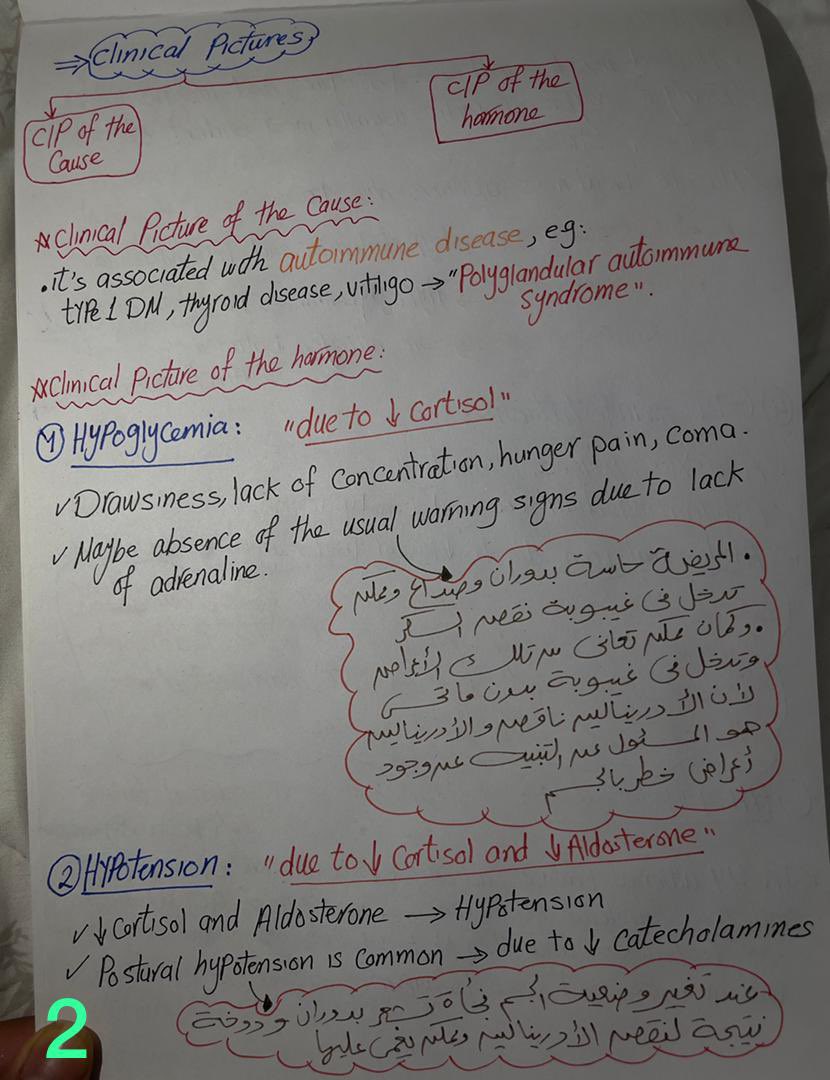 ⇒ Clinical Pictures
C/P of the
Cause
C/P of the
harmone
* Clinical Picture of the Cause:
• it's associated with autoimmune disease, eg:
type 1 DM, thyroid disease, vitiligo → "Polyglandular autoimmune
syndrome".
* Clinical Picture of the harmone:
① Hypoglycemia: "due to ↓ Cortisol"
✓ Drawsiness, lack of concentration, hunger pain, coma.
✓ Maybe absence of the usual warning signs due to lack
of adrenaline.
• المريضة حاسة بدوران وصداع وممكن
تدخل في غيبوبة نقص السكر
• وكمان ممكن تعانى من تلك الأعراض
وتدخل في غيبوبة بدون ما تحس
لأن الأدرينالين ناقص والأدرينالين
هو المسئول عن التنبيه عن وجود
أعراض خطر بالجسم
② Hypotension: "due to ↓ Cortisol and ↓ Aldosterone"
✓ ↓ Cortisol and Aldosterone → Hypotension
✓ Postural hypotension is common → due to ↓ catecholamines
عند تغير وضعية الجسم فجأة تشعر بدوران ودوخة
نتيجة لنقص الأدرينالين وممكن يغمى عليها
2